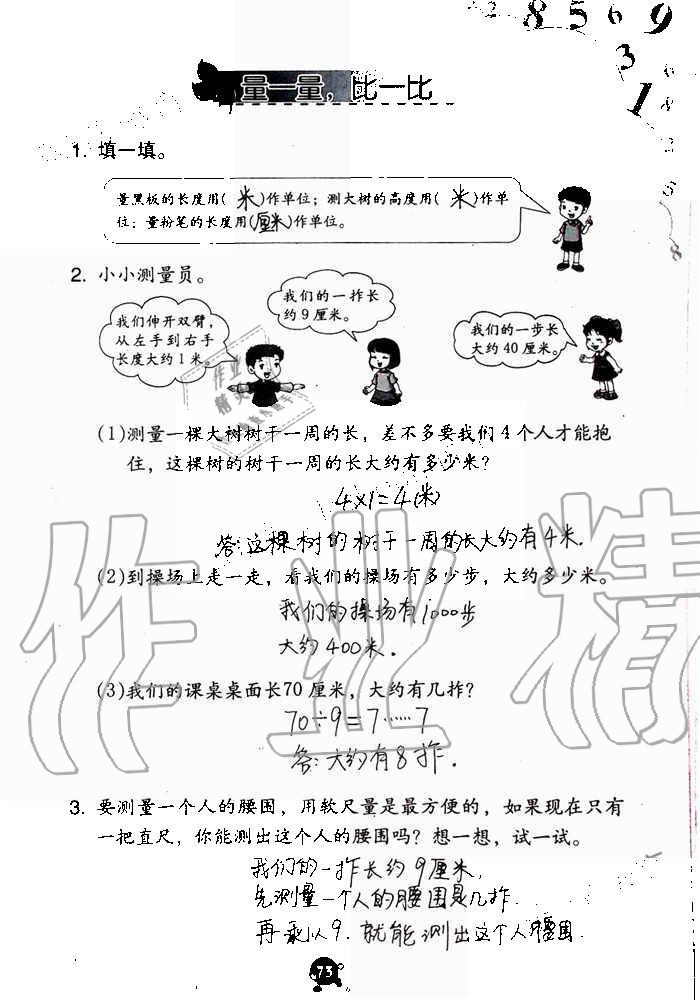 2 8 5 6 9
3
1
量一量，比一比
1. 填一填。
量黑板的长度用( 米 )作单位；测大树的高度用( 米 )作单
位；量粉笔的长度用(厘米)作单位。
2. 小小测量员。
我们伸开双臂，
从左手到右手
长度大约1米。
我们的一拃长
约9厘米。
我们的一步长
大约40厘米。
(1)测量一棵大树树干一周的长，差不多要我们4个人才能抱
住，这棵树的树干一周的长大约有多少米？
4×1=4(米)
答：这棵树的树干一周的长大约有4米.
(2)到操场上走一走，看我们的操场有多少步，大约多少米。
我们的操场有1000步
大约400米.
(3)我们的课桌桌面长70厘米，大约有几拃？
70÷9=7……7
答：大约有8拃.
3. 要测量一个人的腰围，用软尺量是最方便的，如果现在只有
一把直尺，你能测出这个人的腰围吗？想一想，试一试。
我们的一拃长约9厘米,
先测量一个人的腰围是几拃.
再乘以9.就能测出这个人腰围.
73
作业精